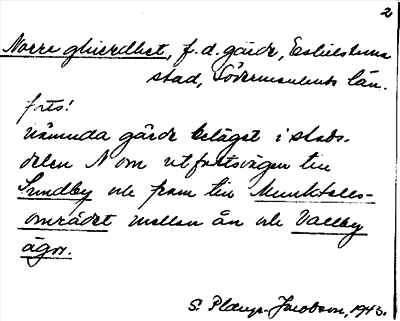 2
Norre ghierdhet, f.d. gärde, Eskilstuna
stad, Södermanlands län.
forts!
nämnda gärde beläget i stads-
delen N om utfartsvägen till
Sundby och fram till Munktells-
området mellan ån och Vallby
ägor.
S. Plænge-Jacobson, 1943.